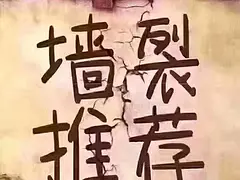 墙裂
推荐